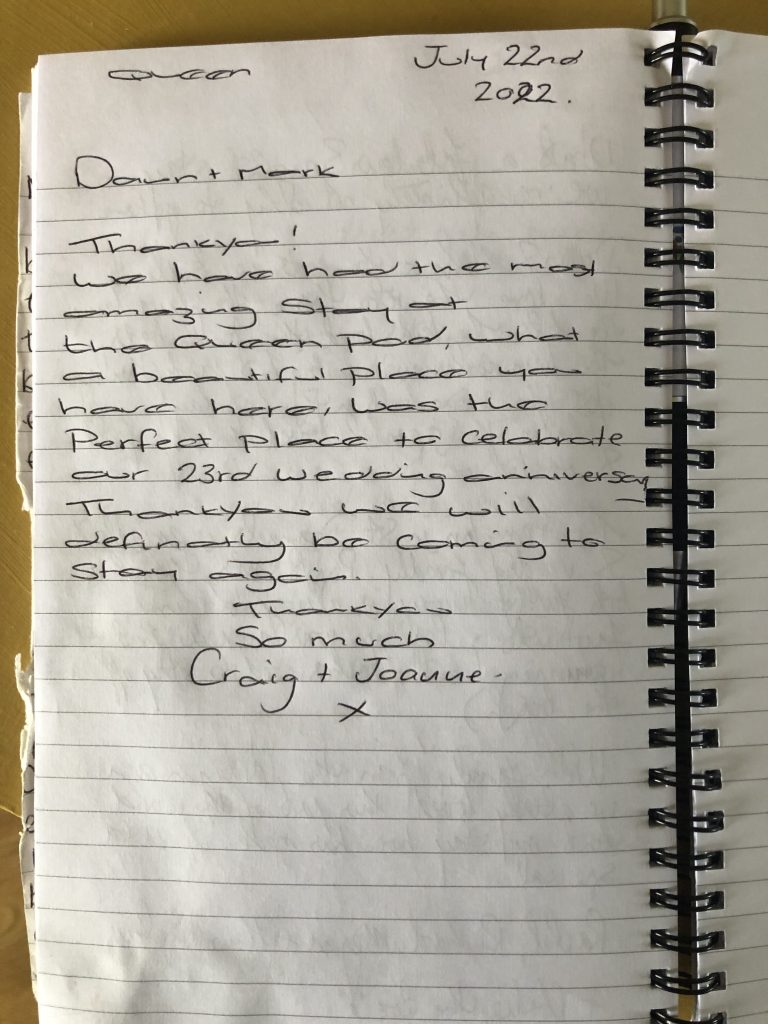 Queen
July 22nd
2022.
Dawn + Mark
Thankyou!
We have had the most
amazing Stay at
the Queen Pod, what
a beautiful place you
have here, Was the
Perfect place to celebrate
our 23rd wedding anniversay
Thankyou we will
definatly be coming to
Stay again.
Thankyou
So much
Craig + Joanne.
x